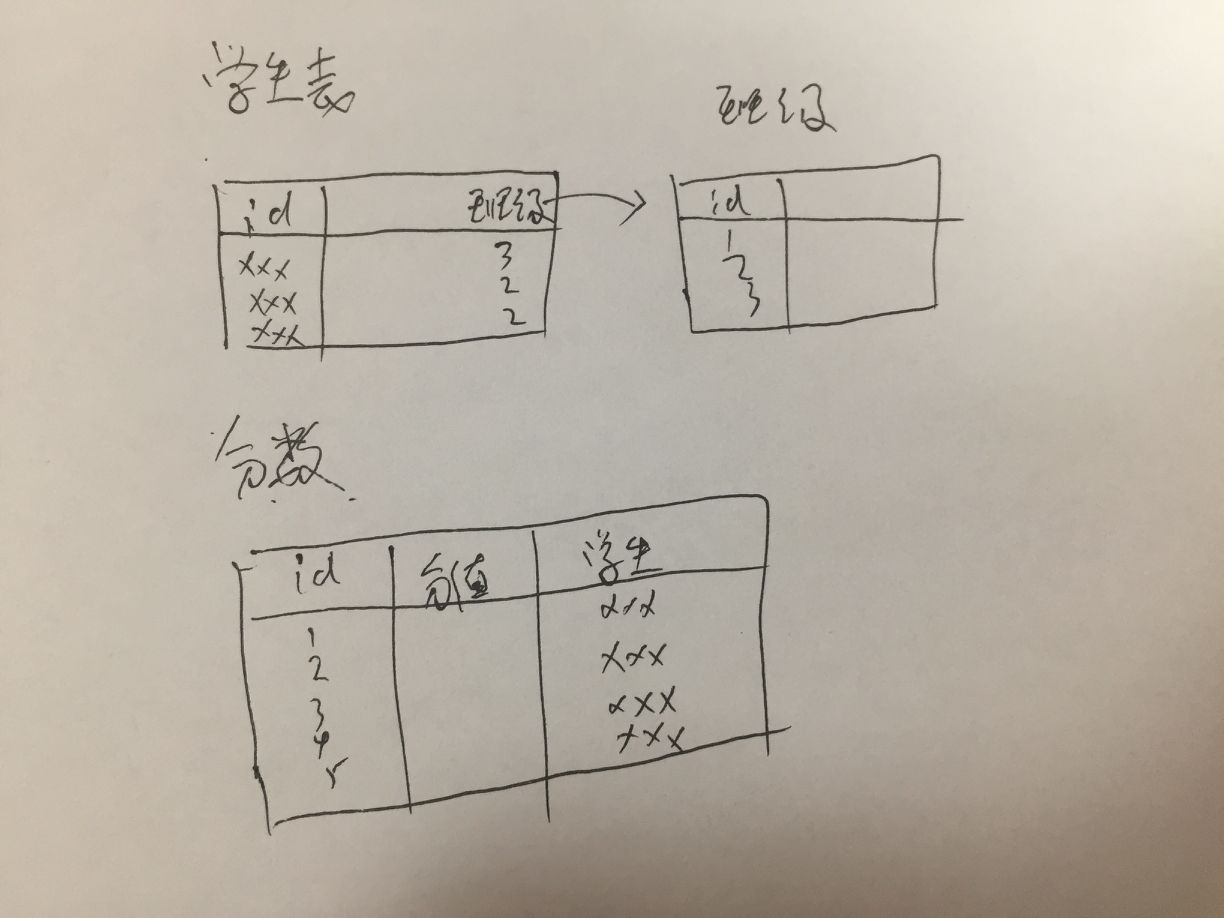 学生表
id 班级
xxx 3
xxx 2
xxx 2
班级
id
1
2
3
分数
id 分值 学生
1 xxx
2 xxx
3 xxx
4 xxx
5